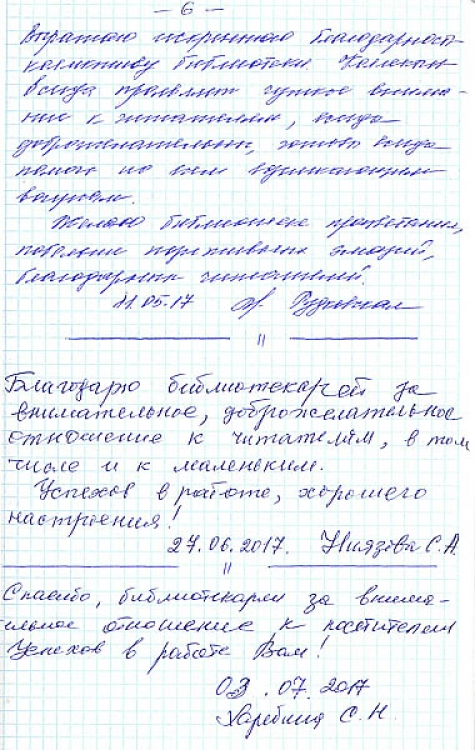 - 6 -
Выражаю искреннюю благодарность
коллективу библиотеки. Коллектив
всегда проявляет чуткое внима-
ние к читателям, всегда
доброжелательны, готовы всегда
помочь по всем возникающим
вопросам.
Желаю библиотеке процветания,
побольше позитивных эмоций,
благодарных читателей.
11.05.17
Благодарю библиотекарей за
внимательное, доброжелательное
отношение к читателям, в том
числе и к маленьким.
Успехов в работе, хорошего
настроения!
27.06.2017. Ниязова С.А.
Спасибо, библиотекари за внима-
льное отношение к посетителям
Успехов в работе Вам!
03.07.2017
С.Н.